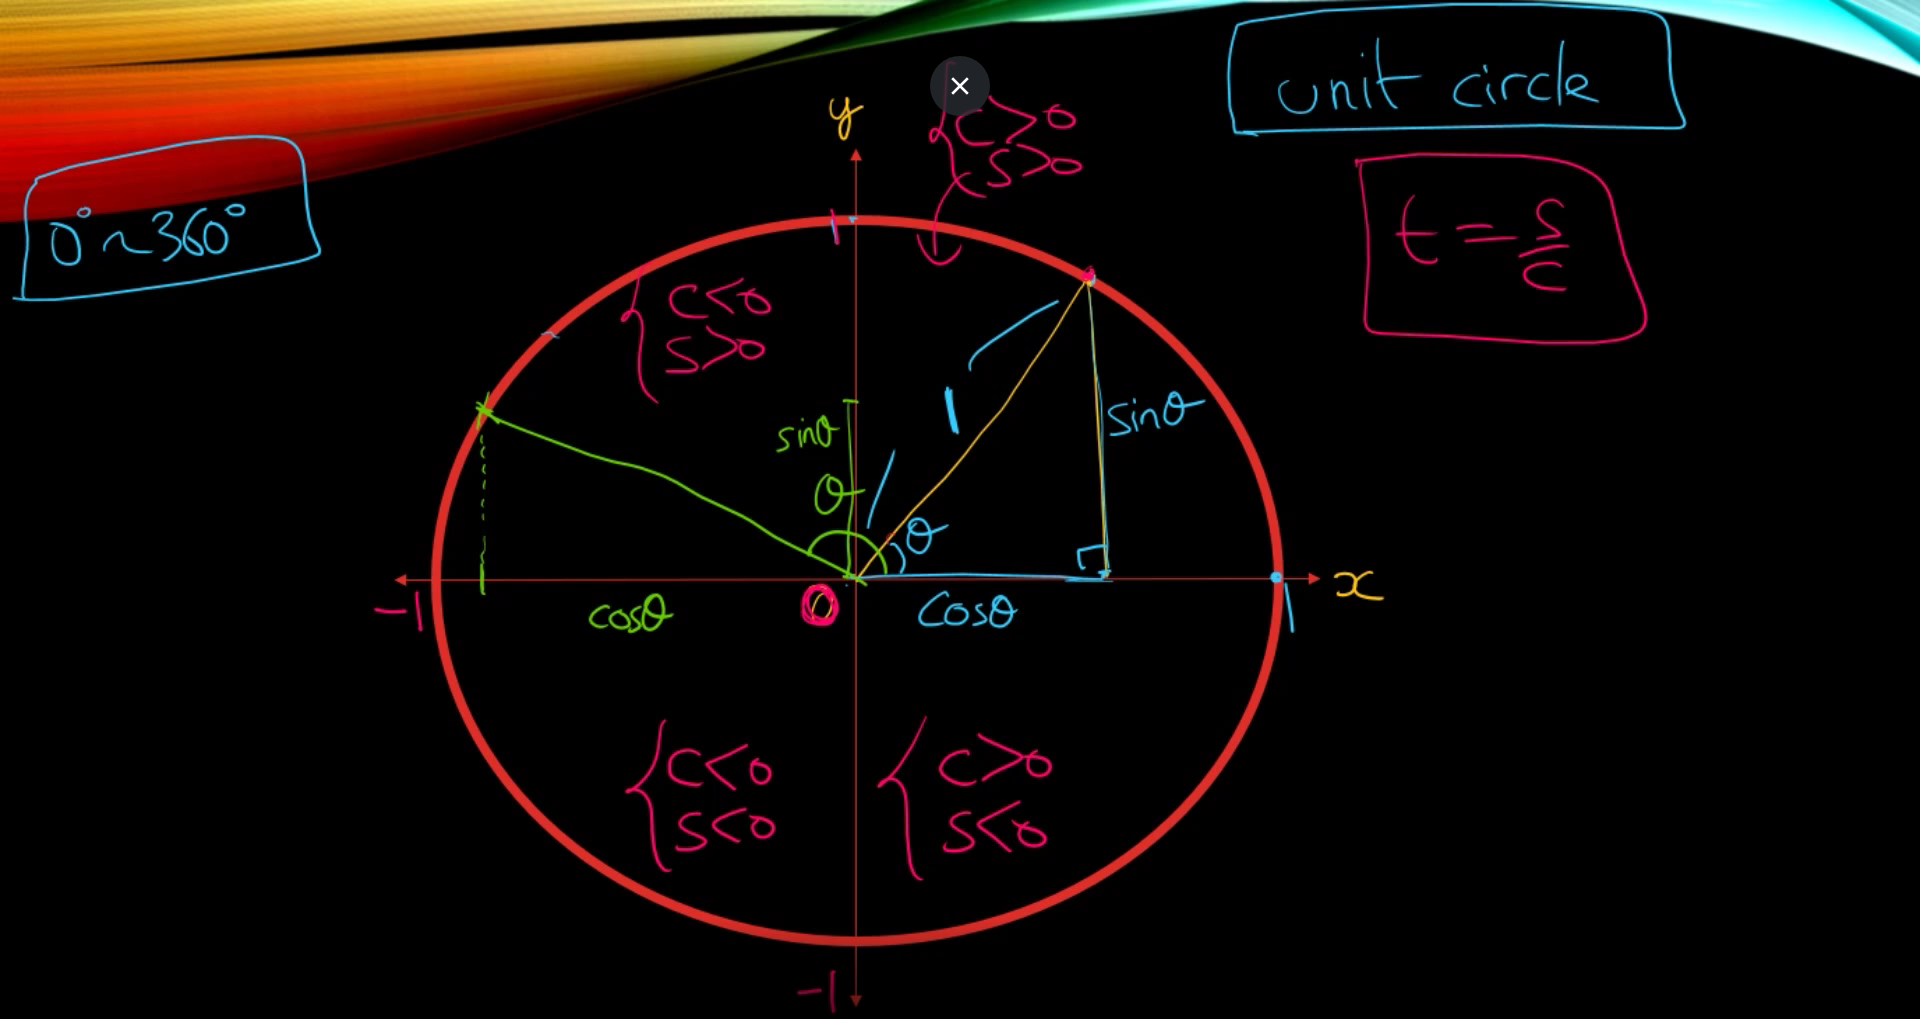 unit circle
y
{ c>0
s>0
0°~360°
t = s/c
1
{ c<0
s>0
1
sinθ
sinθ
θ
θ
-1
cosθ
0
cosθ
1
x
{ c<0
s<0
{ c>0
s<0
-1